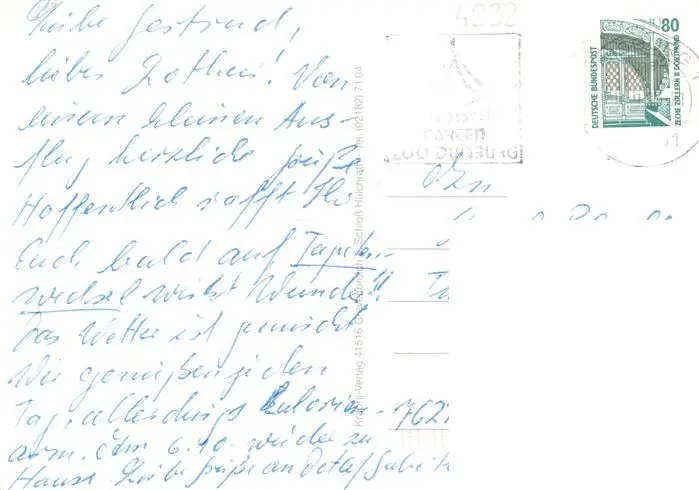 Liebe Gertrud,
lieber Lothar! Von
einem kleinen Aus-
flug herzliche Grüße.
Hoffentlich rafft Ihr
Euch bald auf Tapeten-
wechsel wirkt Wunder!!
Das Wetter ist gemischt
Wir genießen jeden
Tag, allerdings Kalorien-
arm. Am 6.10. wieder zu
Hause. Liebe Grüße an Detlef
4232
GARTEN
ZOO DUISBURG
80
DEUTSCHE BUNDESPOST
ZECHE ZOLLERN II DORTMUND
51
Krapohl-Verlag, 41516 Grevenbroich, Schloß Hülchrath, Tel. (02182) 71 04
An
762